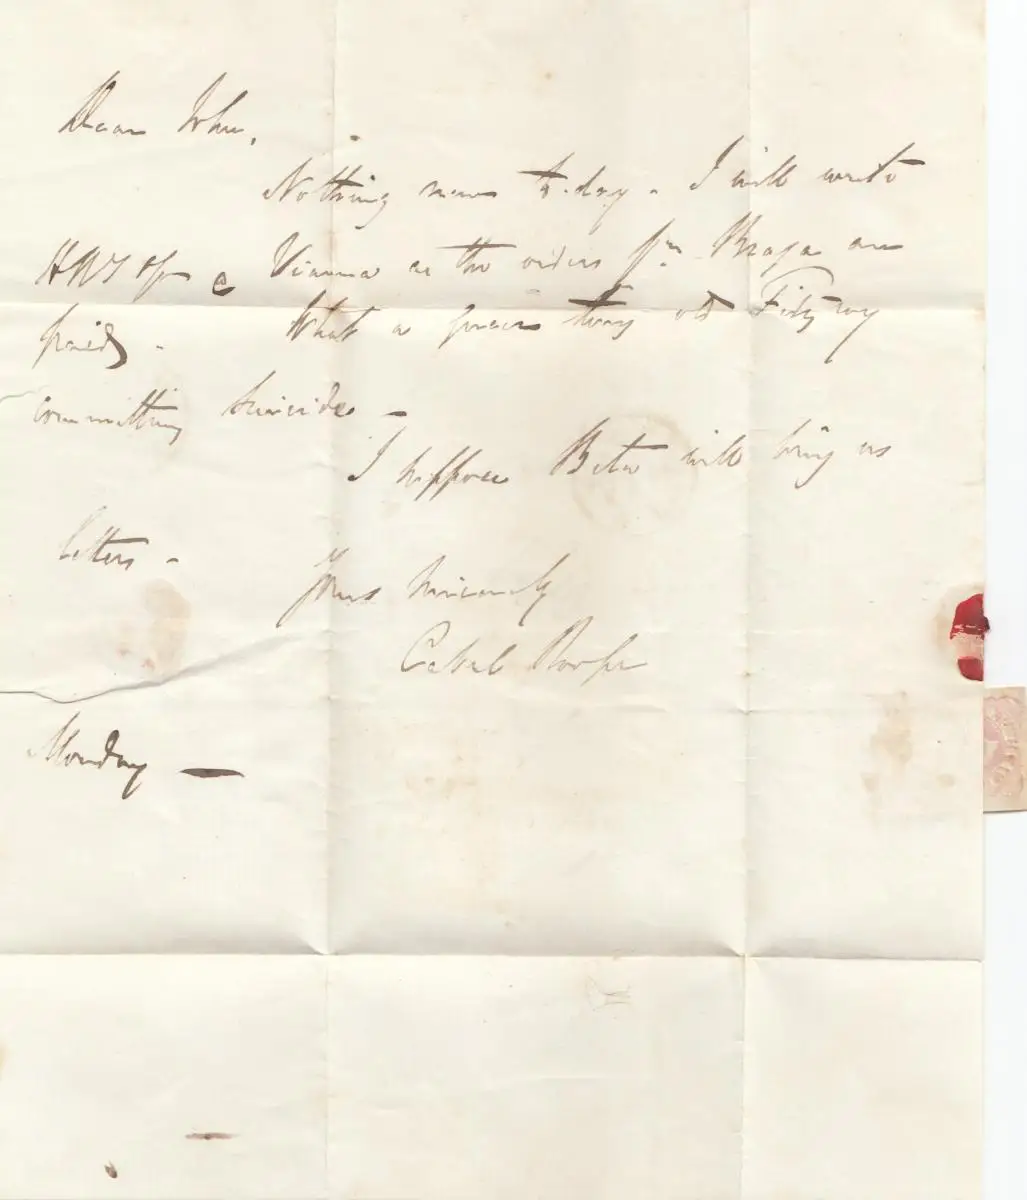 Dear John,
Nothing new to-day. I will write
Vianna as the orders fm Braga are
paid. What a queer thing old Fitzroy
committing suicide -
I suppose Beta will bring us
letters -
Yours sincerely
Cabel Roope
Monday —